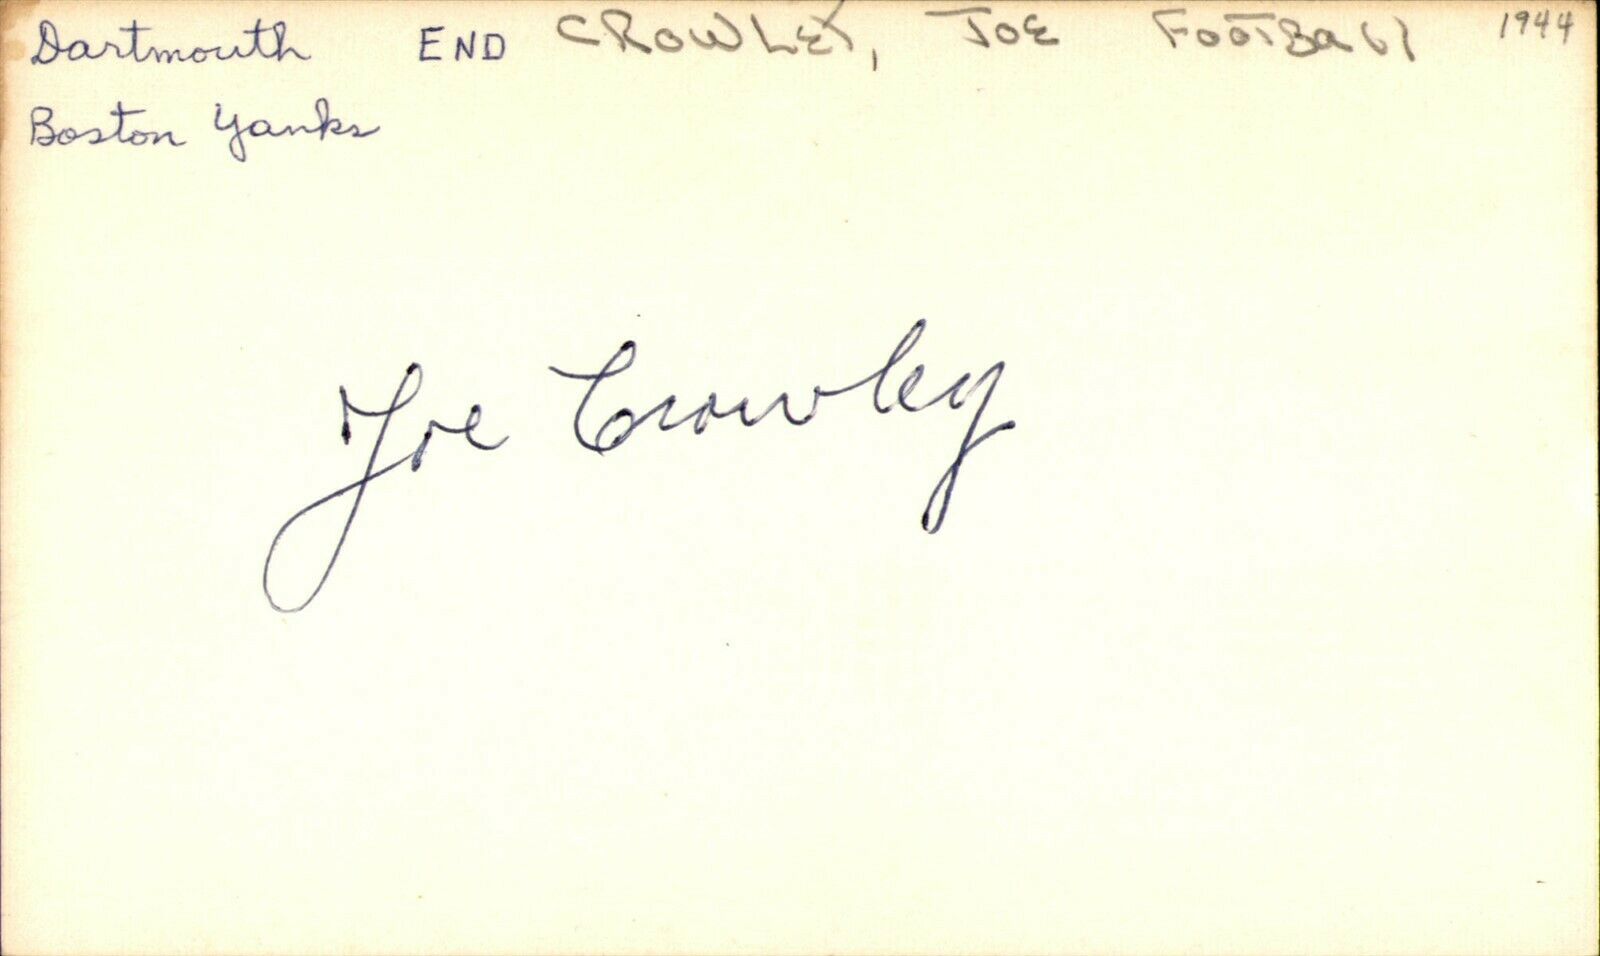 Dartmouth END CROWLEY, JOE FOOTBALL 1944
Boston Yanks
Joe Crowley